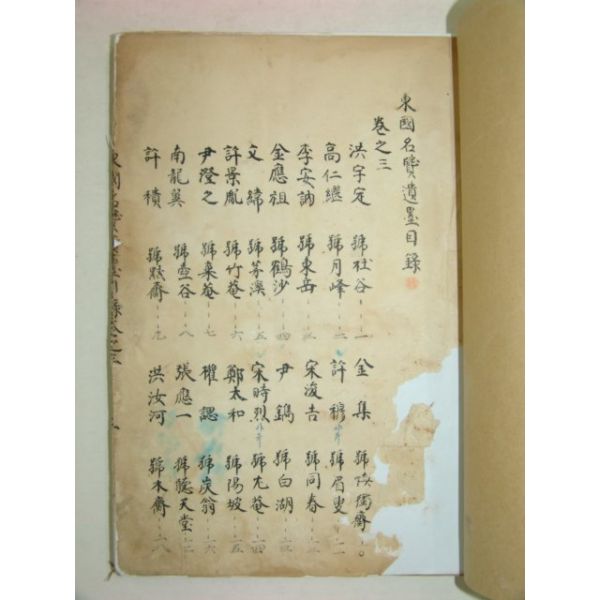 東國名賢遺墨目錄
卷之三
洪宇定 號杜谷 一
高仁繼 號月峰 二
李安訥 號東岳 三
金應祖 號鶴沙 四
文緯 號茅溪 五
許景胤 號竹菴 六
尹澄之 號菴 七
南龍翼 號壺谷 八
許積 號默齋 九
金集 號愼獨齋 一〇
許穆 號眉叟 一一
宋浚吉 號同春 一二
尹鑴 號白湖 一三
宋時烈 號尤菴 一四
鄭太和 號陽坡 一五
權諰 號炭翁 一六
張應一 號聽天堂 一七
洪汝河 號木齋 一八
東國名賢遺墨目錄卷之三